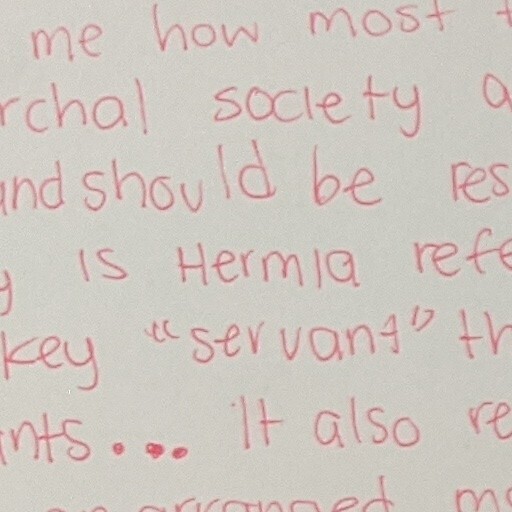 me how most t
rchal society a
and should be res
y is Hermia refe
key "servant" th
ants.... It also re
an arranged mo